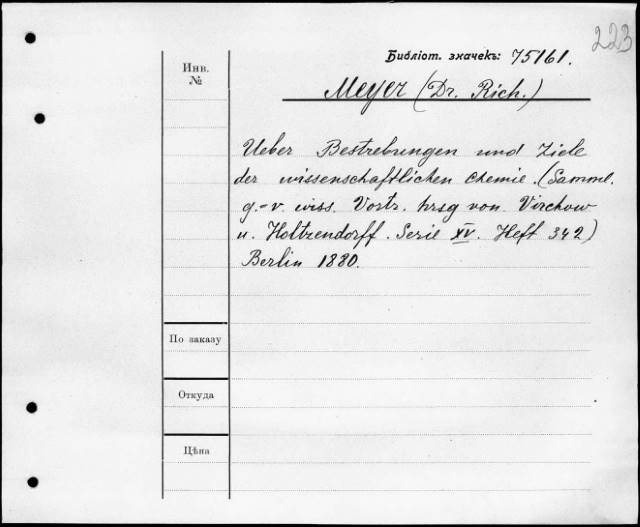 223
Библіот. значекъ: 75161.
Инв.
№
Meyer (Dr. Rich.)
Ueber Bestrebungen und Ziele
der wissenschaftlichen Chemie. (Samml.
g.-v. wiss. Vortr. hrsg von. Virchow
u. Holtzendorff. Serie XV. Heft 342)
Berlin 1880.
По заказу
Откуда
Цѣна